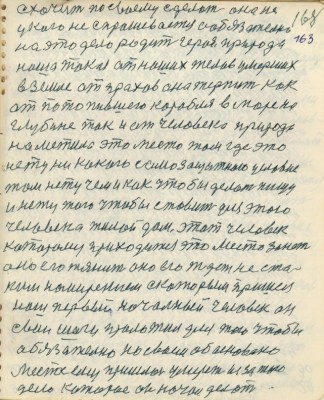 схочит по своему сделат она не
у кого не спрашевается обязателно
на это дело родит герой природа
наша такая от наших телов умерших
в земле от прахов она терпит как
от потопившего корабля в море на
глубине так и от человека природа
наметила это место там где это
нету ни какого самозащитного условие
там нету чем и как чтобы делат пищу
и нету того чтобы ставит для этого
человека жилой дом этот человек
которому приходится это место занят
оно его тянит оно его ждет не ста-
рым намерением с которым пришел
наш первый началный человек он
свои шаги проложил для того чтобы
обязателно на своем обосновано
месте ему пришлос умерет из за того
дело которое он начал делат
168
163